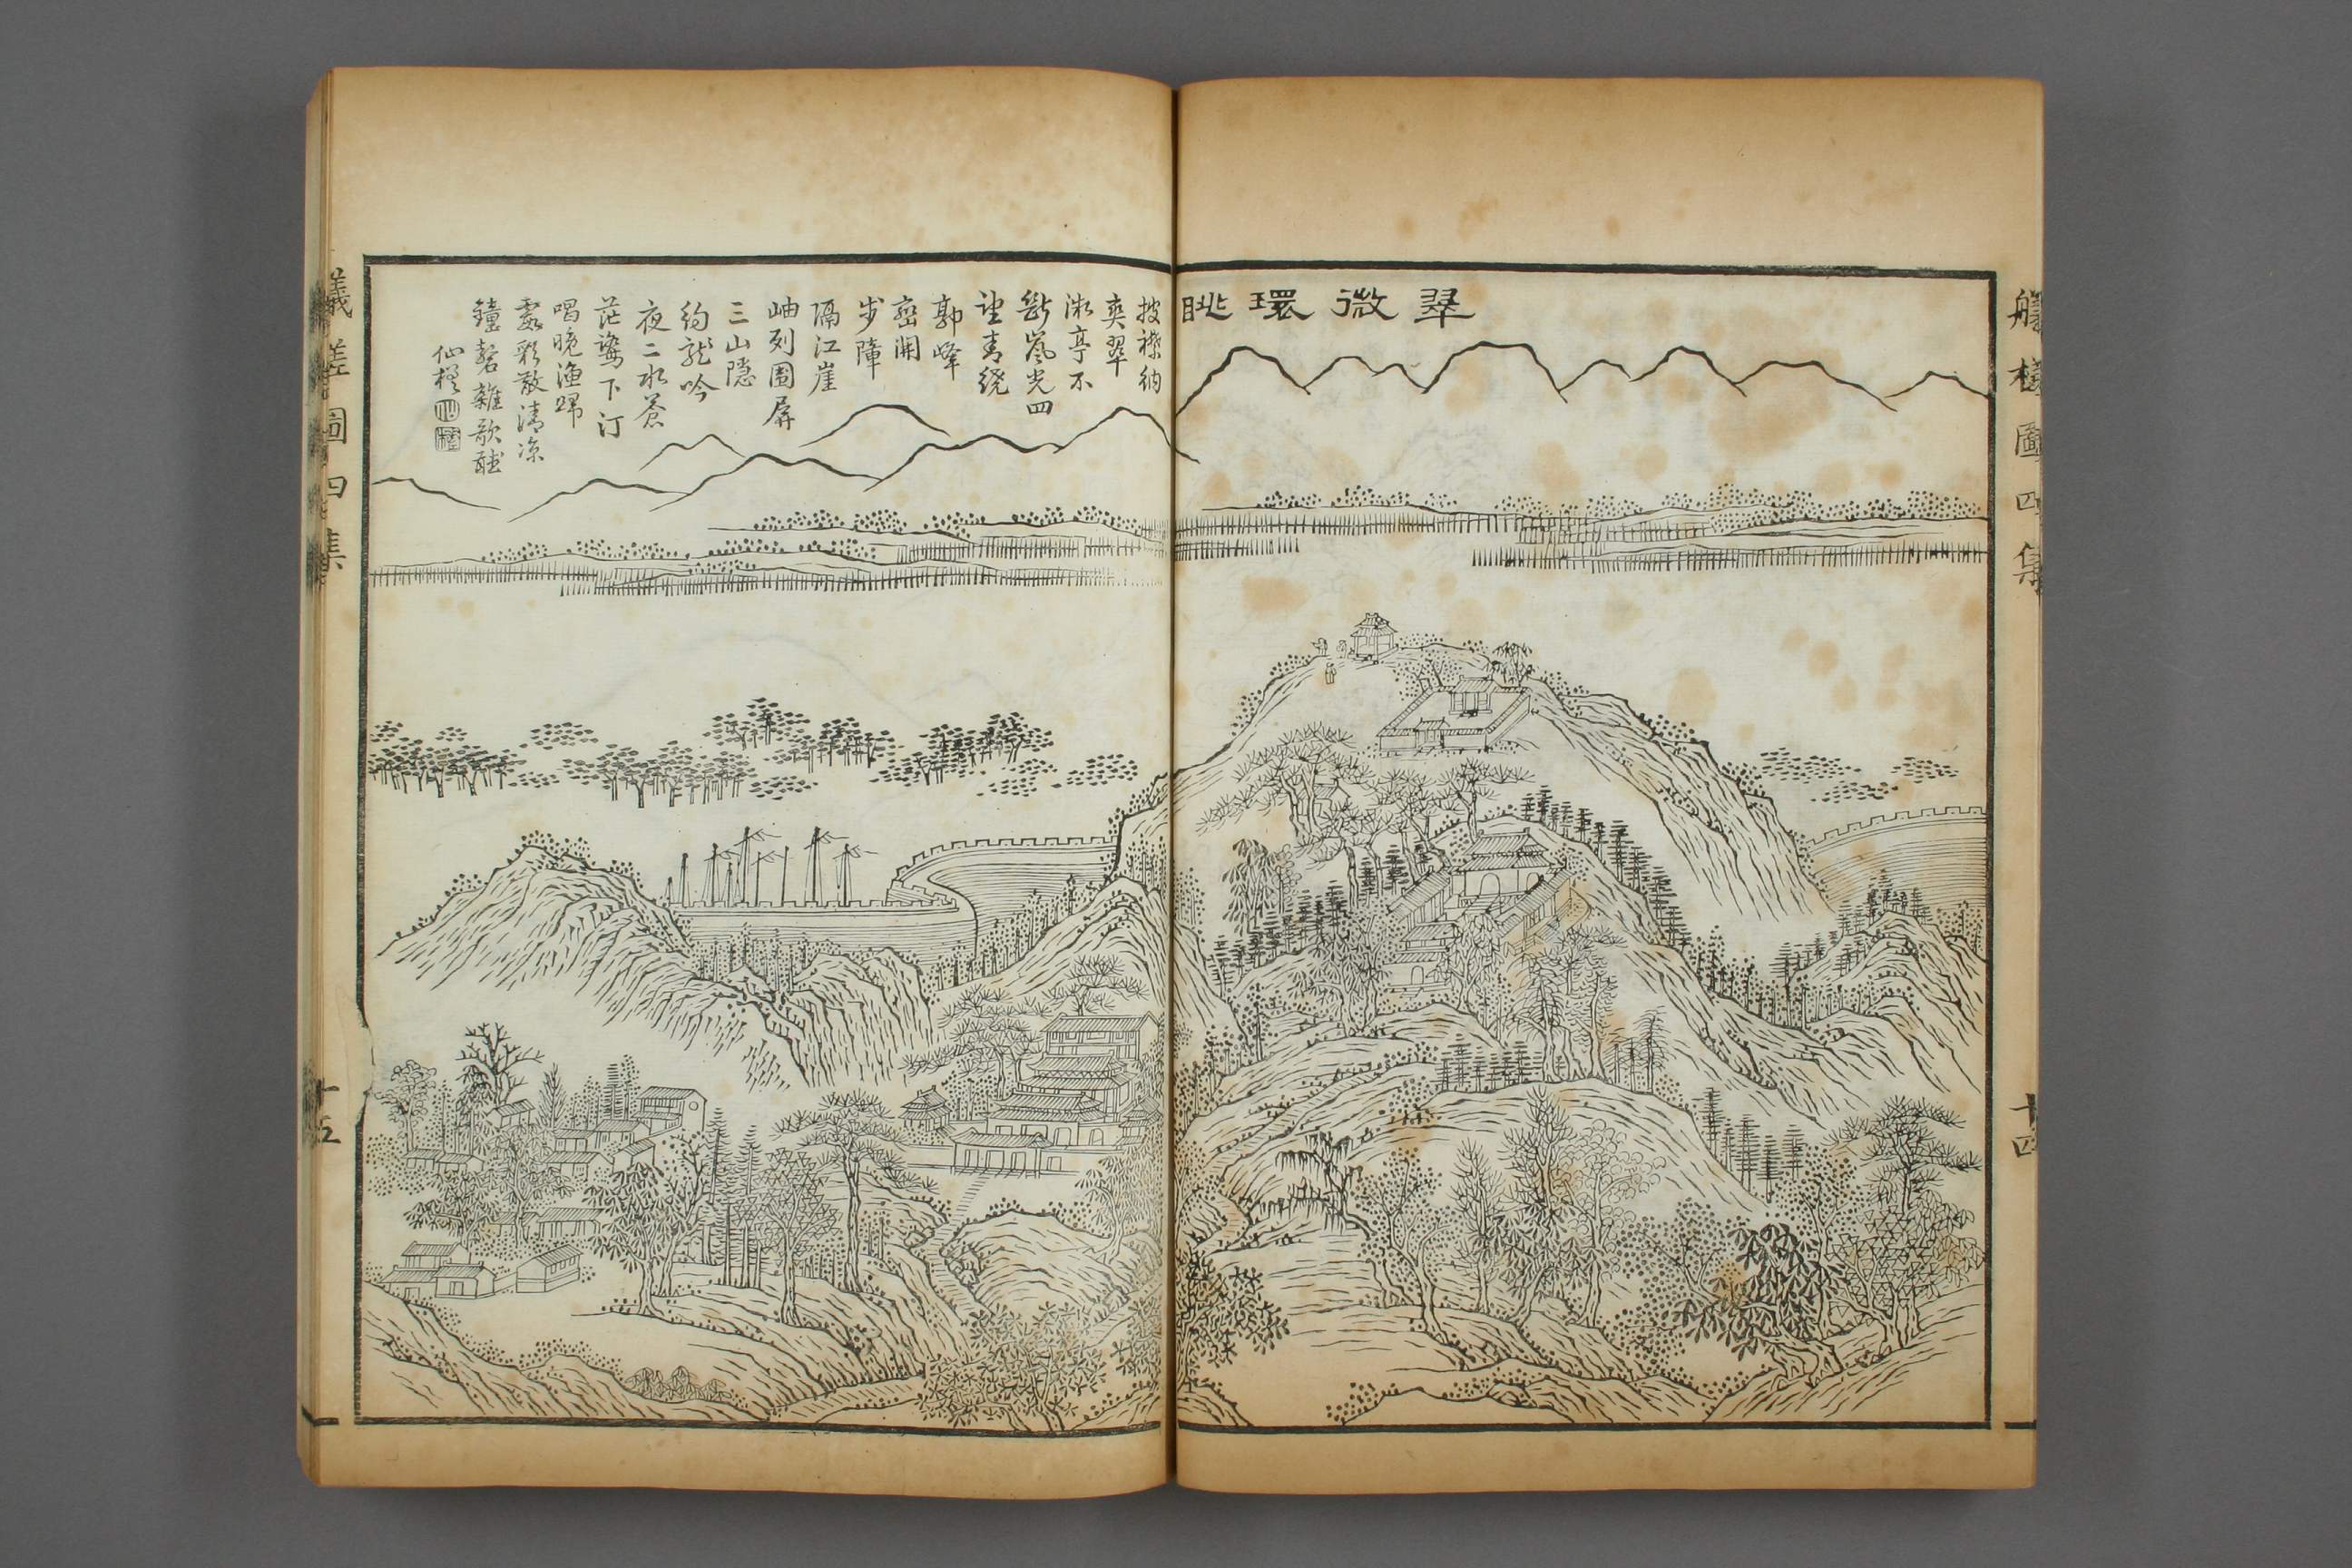 艤槎圖四集
十四
翠微環眺
披襟納
爽翠
微亭不
斷嵐光四
望青繞
郭峰
巒開
步障
隔江崖
岫列圍屏
三山隱
約龍吟
夜二水蒼
茫鷺下汀
唱晚漁歸
霞彩散清涼
鐘磬雜歌聽
仙槎
艤槎圖四集
十五